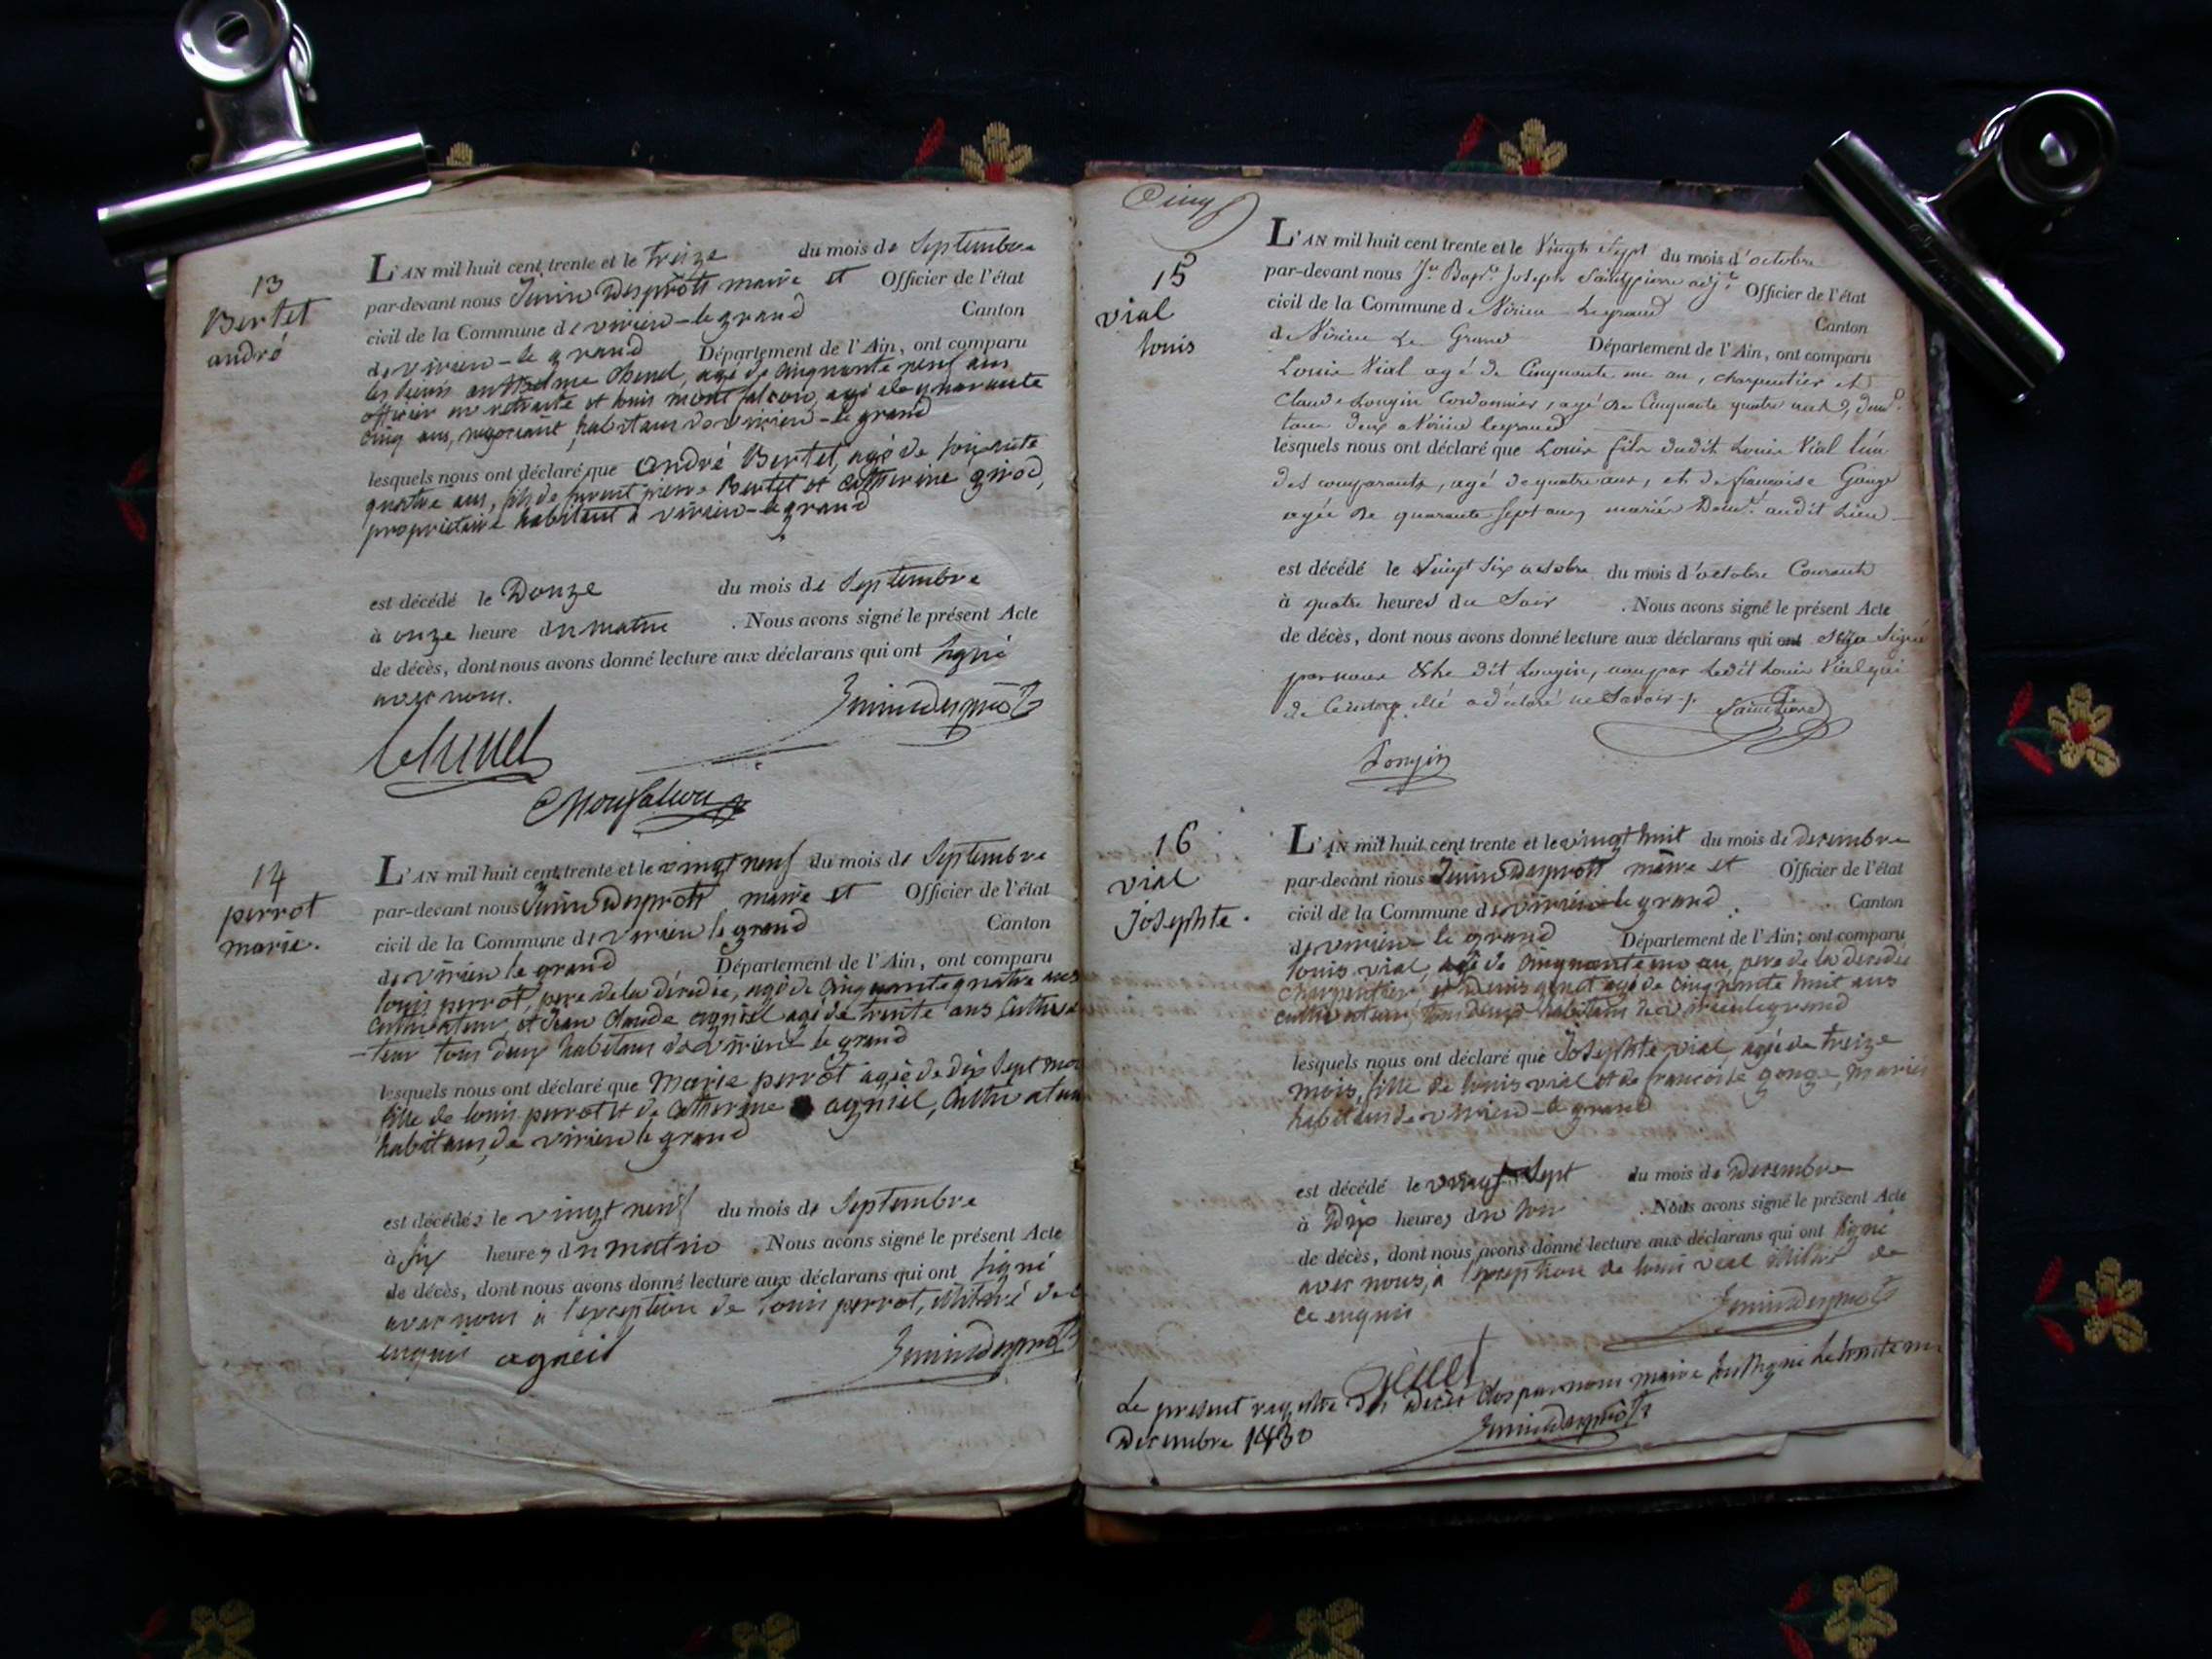 13
Bertet
andré
L'AN mil huit cent trente et le treize du mois de Septembre
par-devant nous mairie et Officier de l'état
civil de la Commune de virieu-le grand Canton
de virieu-le grand Département de l'Ain, ont comparu
les agé de cinquante neuf ans
officier en retraite et louis montfalcon, agé de quarante
cinq ans, negociant, habitans de virieu-le grand
lesquels nous ont déclaré que andré Bertet, agé de soixante
quatre ans, fils de pierre Bertet et catherine girod,
propriétaire habitant a virieu-le grand
est décédé le Douze du mois de Septembre
à onze heure du matin . Nous avons signé le présent Acte
de décès, dont nous avons donné lecture aux déclarans qui ont signé
avec nous.
14
perrot
marie.
L'AN mil huit cent trente et le vingt neuf du mois de Septembre
par-devant nous maire et Officier de l'état
civil de la Commune de virieu le grand Canton
de virieu le grand Département de l'Ain, ont comparu
louis perrot, pere de la décédée, agé de cinquante quatre ans
cultivateur, et jean claude agniel agé de trente ans cultiva
-teur tous deux habitans de virieu le grand
lesquels nous ont déclaré que marie perrot agée de dix sept mois
fille de louis perrot et de catherine agniel, cultivateurs
habitans de virieu le grand
est décédée le vingt neuf du mois de Septembre
à six heures du matin . Nous avons signé le présent Acte
de décès, dont nous avons donné lecture aux déclarans qui ont signé
avec nous à l'exception de louis perrot, illitéré de ce
enquis agneil
Cinq
15
vial
louis
L'AN mil huit cent trente et le Vingt Sept du mois d'octobre
par-devant nous Jn Bapte Joseph Saintpierre adjt Officier de l'état
civil de la Commune de Virieu Legrand Canton
de Virieu Le Grand Département de l'Ain, ont comparu
Louis Vial agé de Cinquante un an, charpentier et
Claude Longin Cordonnier, agé de Cinquante quatre ans,
tous deux a Virieu legrand
lesquels nous ont déclaré que Louis fils dudit Louis Vial l'un
des comparants, agé de quatre ans, et de francoise Gonge
agée de quarante sept ans, mariés audit Lieu
est décédé le Vingt Six octobre du mois d'octobre Courant
à quatre heures du Soir . Nous avons signé le présent Acte
de décès, dont nous avons donné lecture aux déclarans qui ont Signé
par nous dit Longin, non par Ledit Louis Vial qui
de Ce a déclaré ne Savoir. Saintpierre
Longin
16
vial
Josephte.
L'AN mil huit cent trente et le vingt huit du mois de decembre
par-devant nous maire et Officier de l'état
civil de la Commune de virieu le grand Canton
de virieu le grand Département de l'Ain; ont comparu
louis vial, agé de cinquante un an, pere de la décédée
charpentier et agé de cinquante huit ans
cultivateur, tous deux habitans de virieu legrand
lesquels nous ont déclaré que Josephte vial, agée de treize
mois, fille de louis vial et de francoise gonge, mariés
habitans de virieu-le grand
est décédé le vingt Sept du mois de Decembre
à Dix heures du soir . Nous avons signé le présent Acte
de décès, dont nous avons donné lecture aux déclarans qui ont signé
avec nous, à l'exception de louis vial illitéré de
ce enquis
Le present registre des decès clos par nous maire soussigné le trente un
Decembre 1830